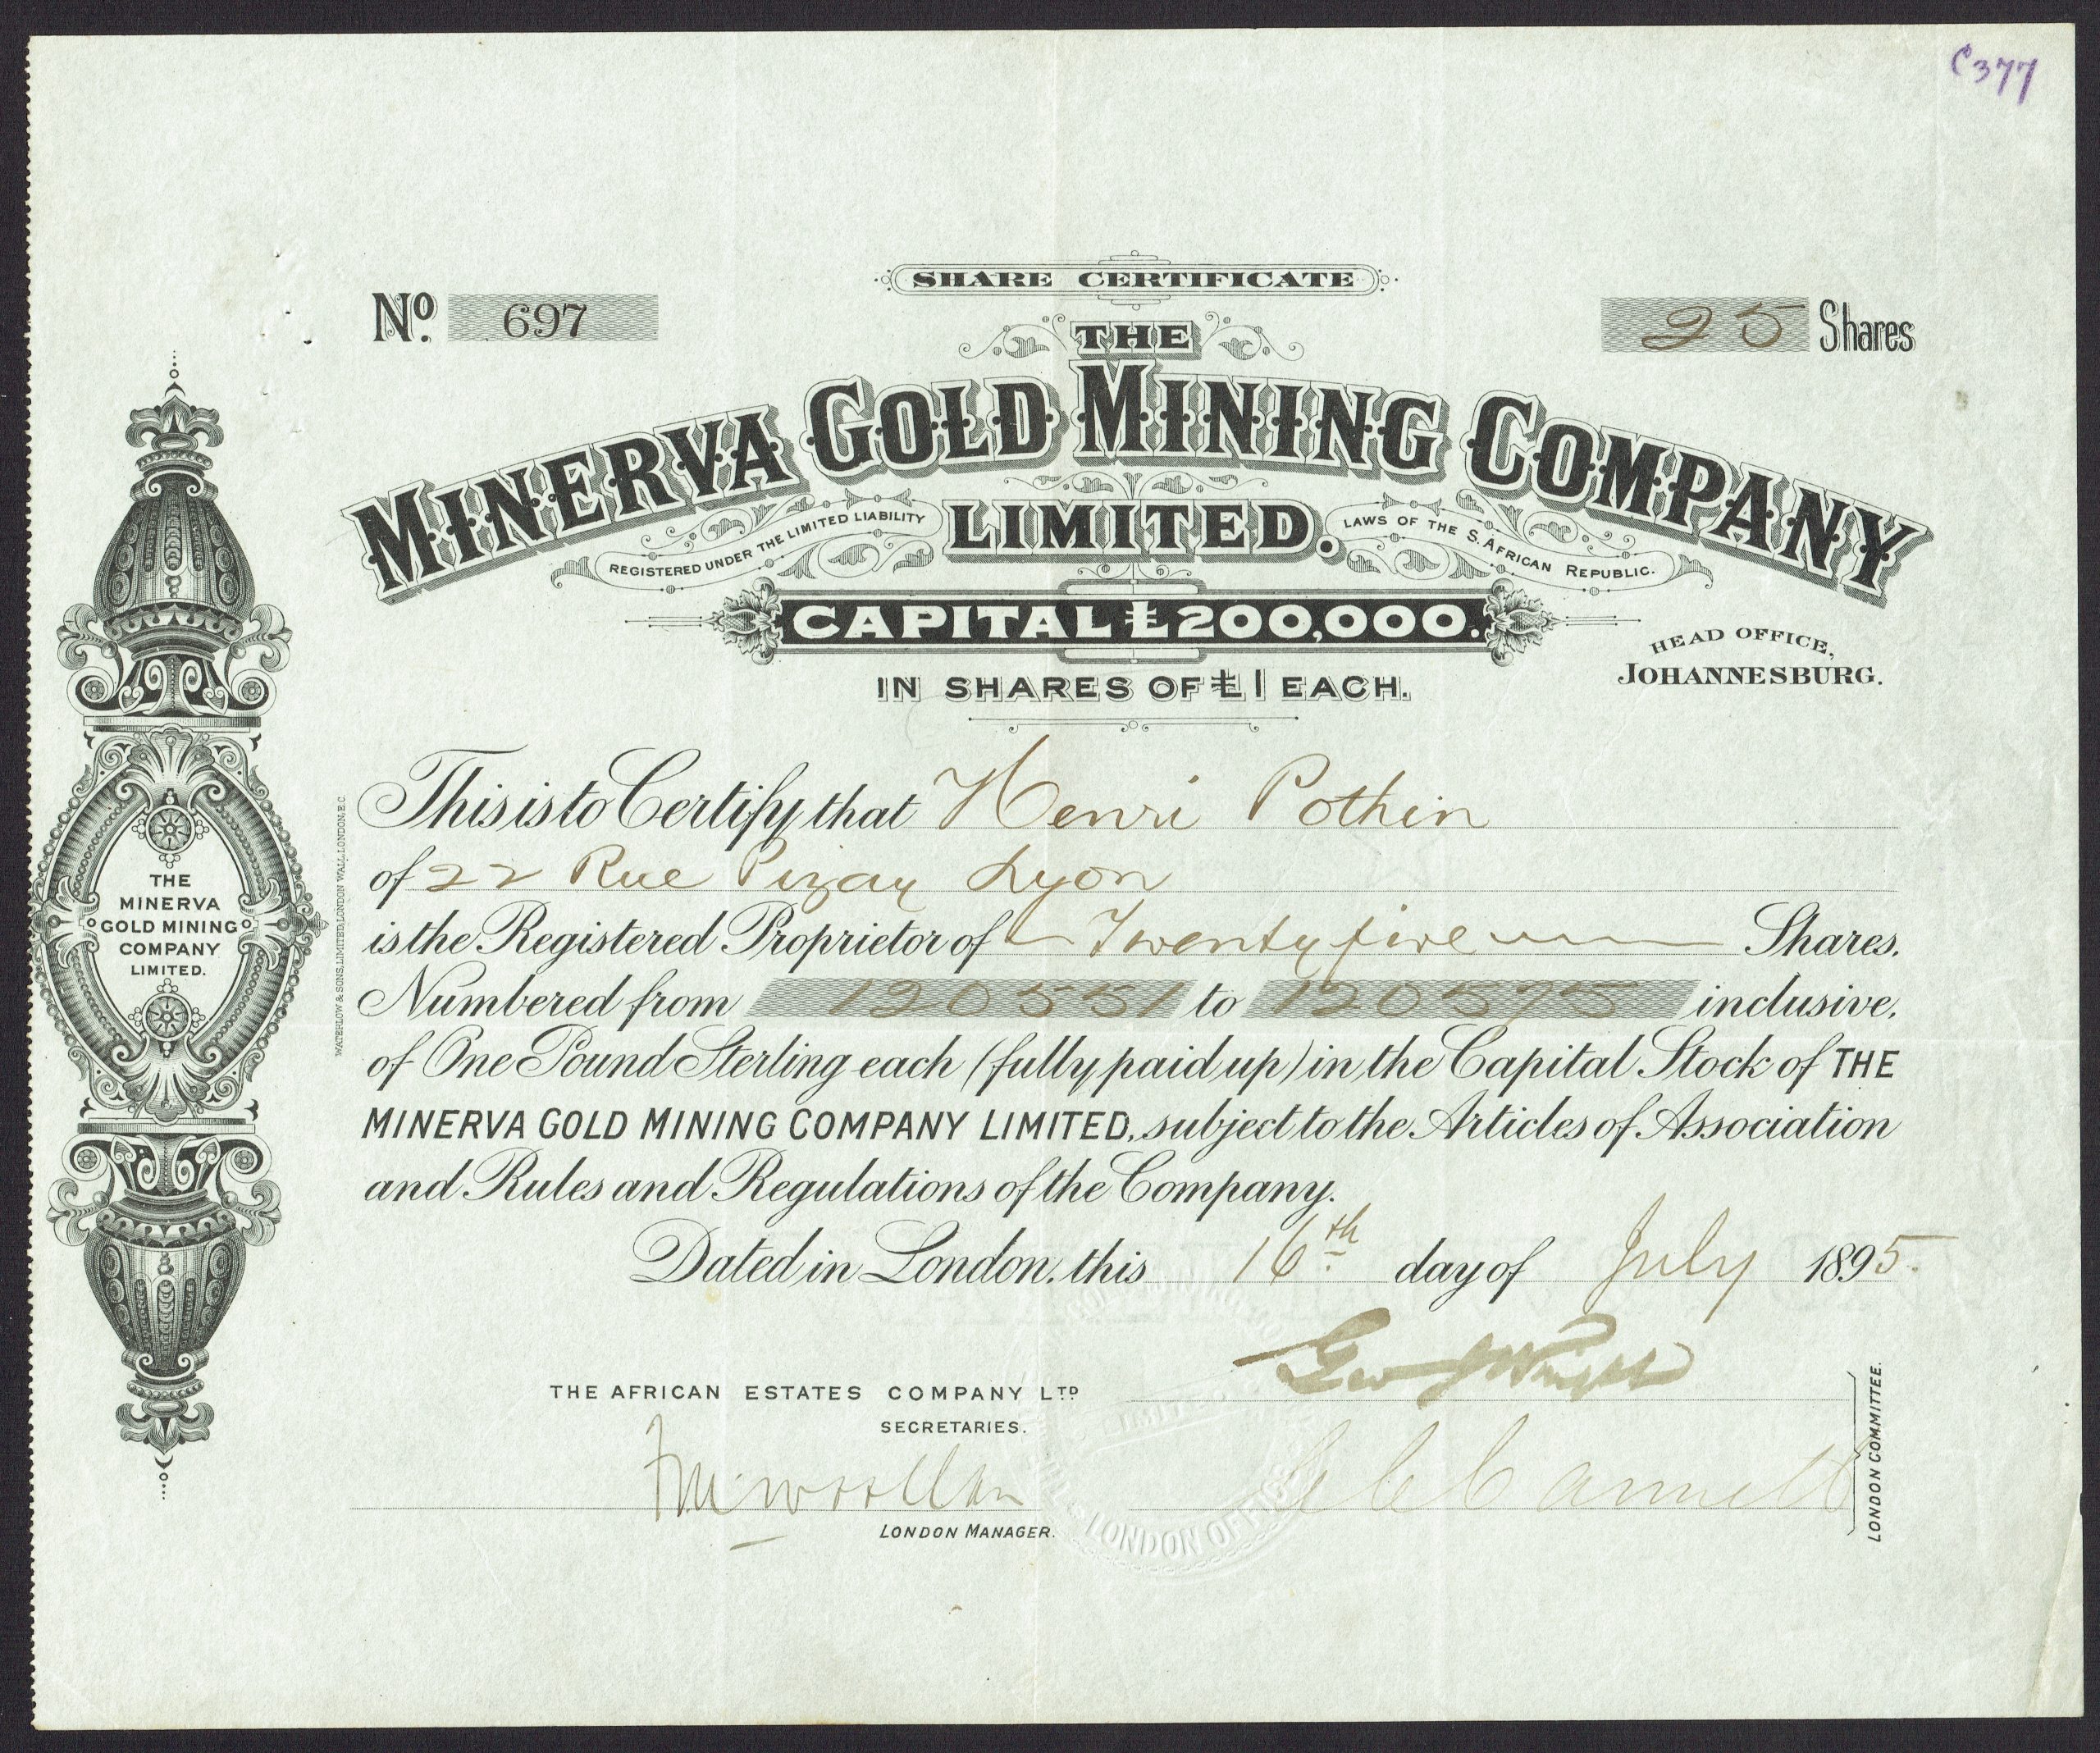 C377
SHARE CERTIFICATE
No. 697
25 Shares
THE
MINERVA GOLD MINING COMPANY
LIMITED.
REGISTERED UNDER THE LIMITED LIABILITY
LAWS OF THE S. AFRICAN REPUBLIC.
CAPITAL £200,000.
IN SHARES OF £1 EACH.
HEAD OFFICE,
JOHANNESBURG.
This is to Certify that Henri Pothin
of 22 Rue Pizay Lyon
is the Registered Proprietor of Twenty five Shares,
Numbered from 120551 to 120575 inclusive,
of One Pound Sterling each (fully paid up) in the Capital Stock of THE
MINERVA GOLD MINING COMPANY LIMITED, subject to the Articles of Association
and Rules and Regulations of the Company.
Dated in London, this 16th day of July 1895.
THE AFRICAN ESTATES COMPANY LTD
SECRETARIES.
LONDON MANAGER.
LONDON COMMITTEE.
LONDON OFFICE
THE
MINERVA
GOLD MINING
COMPANY
LIMITED.
WATERLOW & SONS, LIMITED, LONDON WALL, LONDON, E.C.